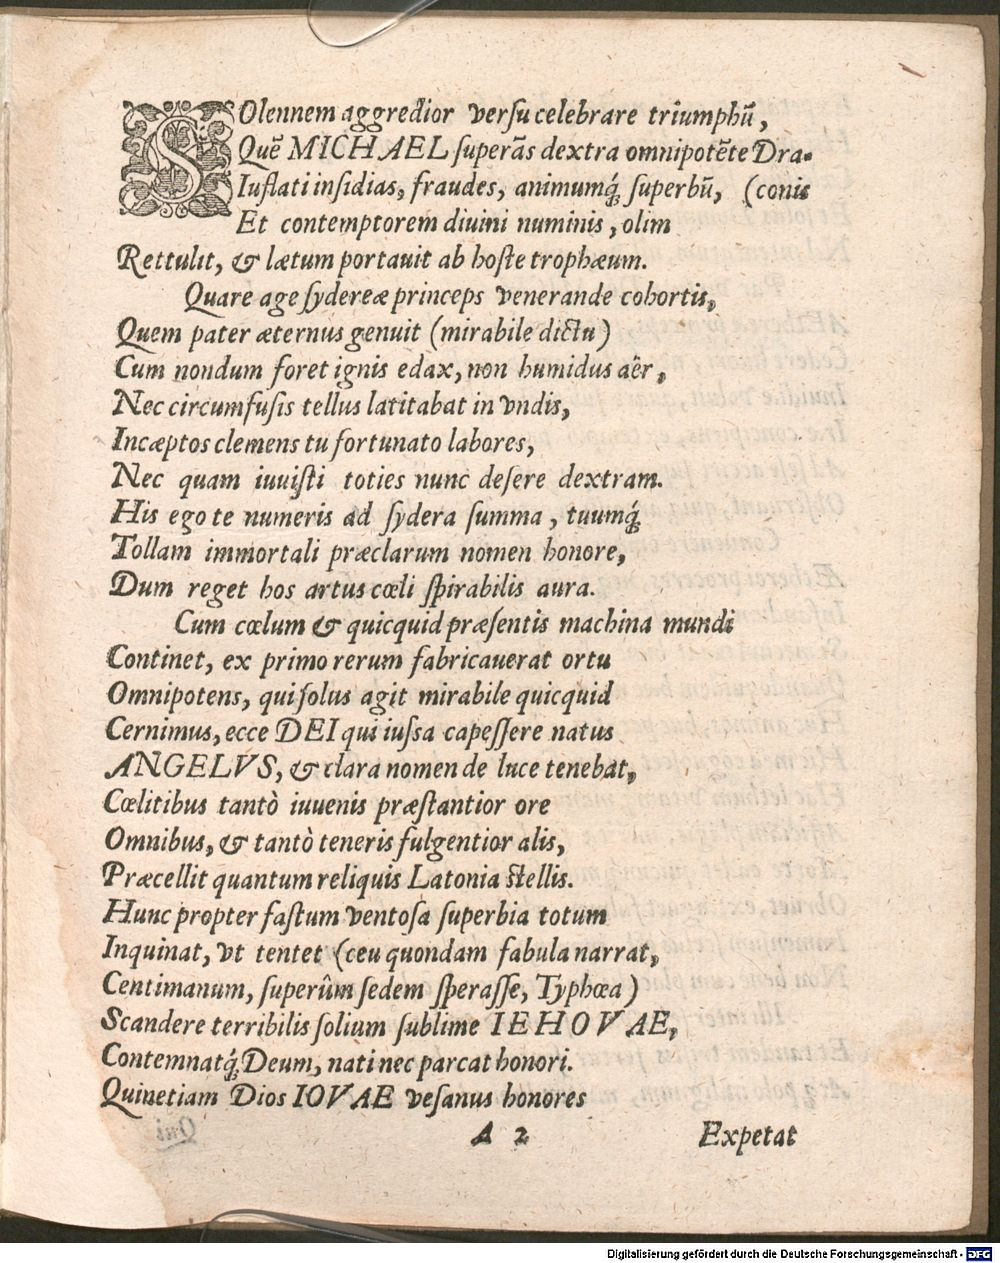 SOlennem aggredior versu celebrare triumphũ,
Quẽ MICHAEL superãs dextra omnipotẽte Dra-
Iuflati insidias, fraudes, animumq́; superbũ, (conis
Et contemptorem diuini numinis, olim
Rettulit, & lætum portauit ab hoste trophæum.
Quare age sydereæ princeps venerande cohortis,
Quem pater æternus genuit (mirabile dictu)
Cum nondum foret ignis edax, non humidus aêr,
Nec circumfusis tellus latitabat in vndis,
Incæptos clemens tu fortunato labores,
Nec quam iuuisti toties nunc desere dextram.
His ego te numeris ad sydera summa, tuumq́;
Tollam immortali præclarum nomen honore,
Dum reget hos artus cœli spirabilis aura.
Cum cœlum & quicquid præsentis machina mundi
Continet, ex primo rerum fabricauerat ortu
Omnipotens, qui solus agit mirabile quicquid
Cernimus, ecce DEI qui iussa capessere natus
ANGELVS, & clara nomen de luce tenebat,
Cœlitibus tantò iuuenis præstantior ore
Omnibus, & tantò teneris fulgentior alis,
Præcellit quantum reliquis Latonia stellis.
Hunc propter fastum ventosa superbia totum
Inquinat, vt tentet (ceu quondam fabula narrat,
Centimanum, superûm sedem sperasse, Typhœa)
Scandere terribilis solium sublime IEHOVAE,
Contemnatq́; Deum, nati nec parcat honori.
Quinetiam Dios IOVAE vesanus honores
A 2 Expetat
Digitalisierung gefördert durch die Deutsche Forschungsgemeinschaft - DFG